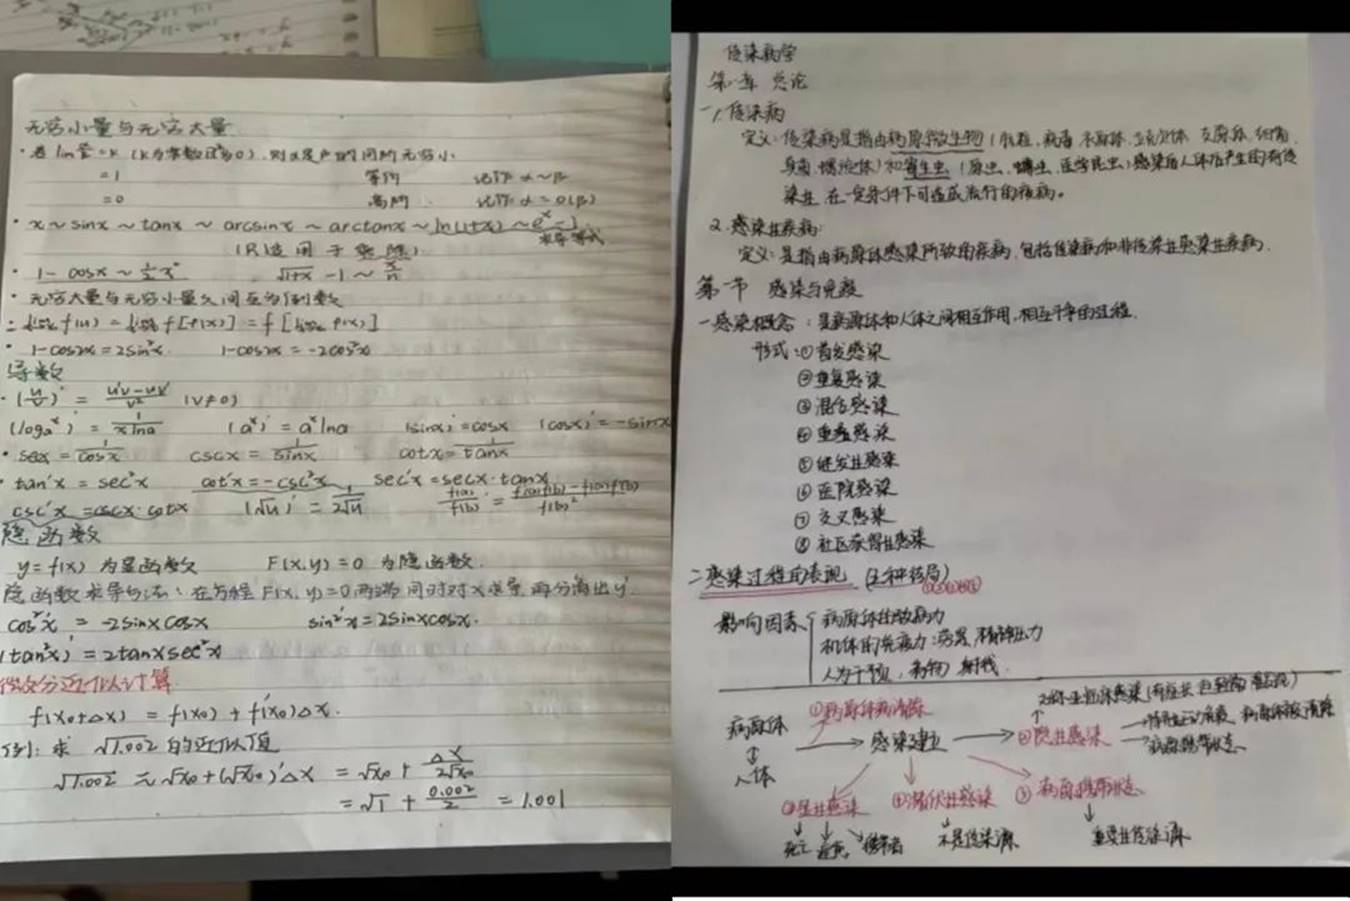 无穷小量与无穷大量
·若lim = k (k为常数且≠0),则α是β的同阶无穷小
= 1 等价 记作 α~β
= 0 高阶 记作 α=o(β)
·x~sinx~tanx~arcsinx~arctanx~ln(1+x)~eˣ-1
(只适用于乘除)
·1-cosx~½x² √1+x -1~x/n
·无穷大量与无穷小量之间互为倒数
= f(u) = f[φ(x)] = f[φ(x)]
·1-cos2x=2sin²x 1-cos2x=-2cos²x
导数
·(u/v)' = u'v-uv'/v² (v≠0)
(logaˣ)' = 1/xlna (aˣ)'=aˣlna (sinx)'=cosx (cosx)'=-sinx
·secx=1/cosx cscx=1/sinx cotx=1/tanx
·tan'x=sec²x cot'x=-csc²x sec'x=secx·tanx
csc'x=-cscx·cotx (√u)'=1/2√u
隐函数
y=f(x)为显函数 F(x,y)=0为隐函数.
隐函数求导方法:在方程F(x,y)=0两端同时对x求导,再分离出y'
cos²x'=-2sinxcosx sin²'x=2sinxcosx.
(tan²x)'=2tanxsec²x
微分近似计算
f(x₀+Δx)=f(x₀)+f'(x₀)Δx.
例:求√1.002的近似值
√1.002≈√x₀+(√x₀)'Δx=√x₀+Δx/2√x₀
=√1+0.002/2=1.001
传染病学
第一章 总论
一1.传染病
定义:传染病是指由病原微生物(朊粒、病毒、衣原体、立克次体、支原体、细菌、
真菌、螺旋体)和寄生虫(原虫、蠕虫、医学昆虫)感染后人体后产生的有传
染性、在一定条件下可造成流行的疾病。
2.感染性疾病:
定义:是指由病原体感染所致的疾病,包括传染病和非传染性感染性疾病.
第一节 感染与免疫
一感染概念:是病原体和人体之间相互作用,相互斗争的过程.
形式:①首发感染
②重复感染
③混合感染
④重叠感染
⑤继发性感染
⑥医院感染
⑦交叉感染
⑧社区获得性感染
二感染过程的表现 (五种结局)
①②③④⑤
影响因素 病原体性致病力
机体的免疫力
人为干预,药物 射线.
又称亚临床感染
①病原体被清除
病原体 → 感染建立 → ②隐性感染
病原体被清除
病原携带状态
人体
③显性感染 ④潜伏性感染 ⑤病原携带状态
死亡 携带者 不是传染源 重要性传染源